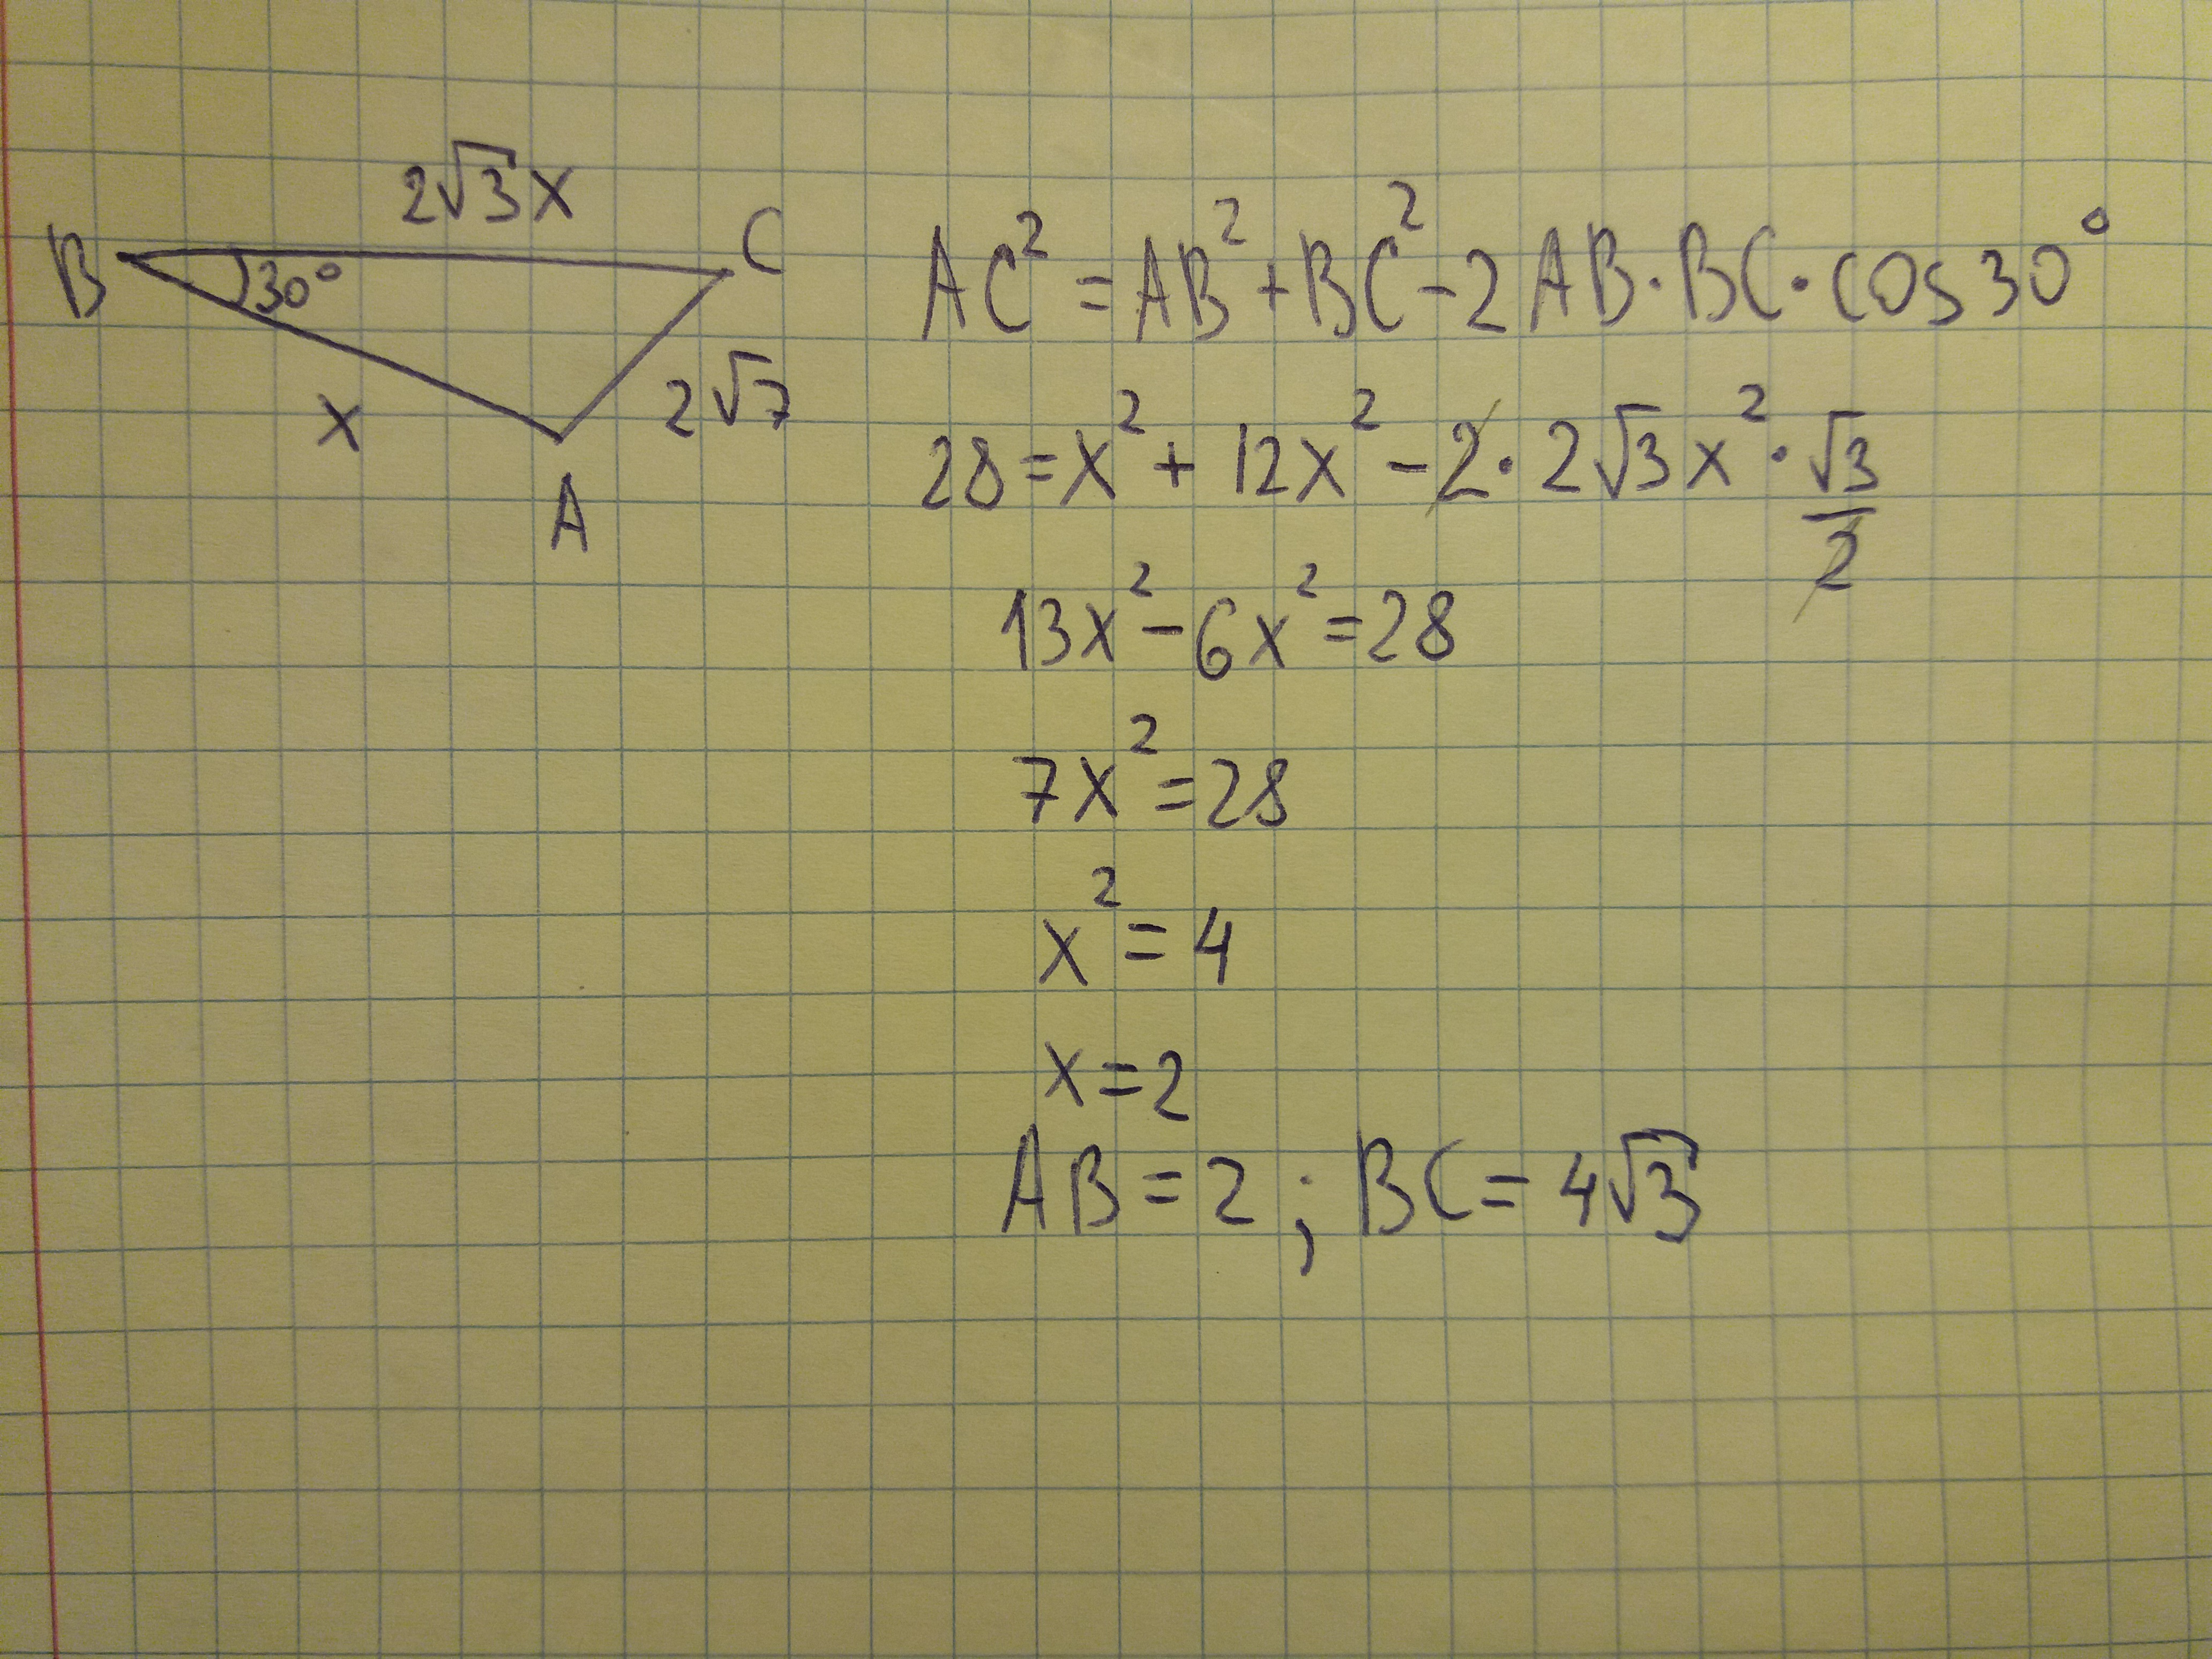 2√3x
B 30° C
x 2√7
A
AC² = AB² + BC² - 2AB · BC · cos30°
28 = x² + 12x² - 2 · 2√3x² · √3/2
13x² - 6x² = 28
7x² = 28
x² = 4
x = 2
AB = 2 ; BC = 4√3